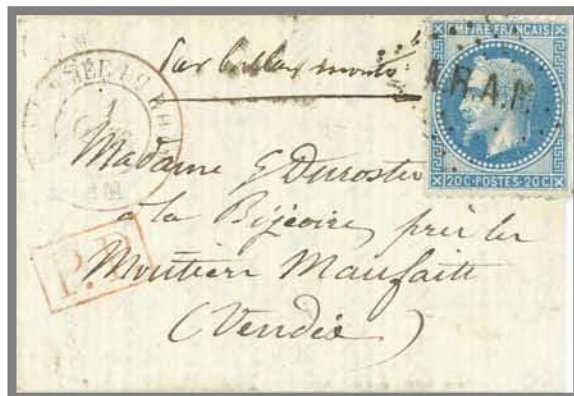 Par ballon monté
EMPIRE FRANÇAIS
A.R.A.M
20C·POSTES·20C
ARMÉE DU RHIN
1
Madame G Durostu
à la Bijoire près les
Moutiers Maufaits
(Vendée)
P.P.